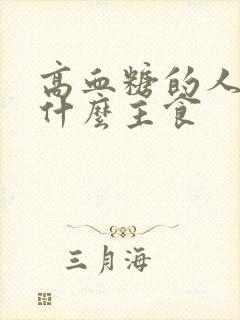 高血糖的人
什麼主食
三月海